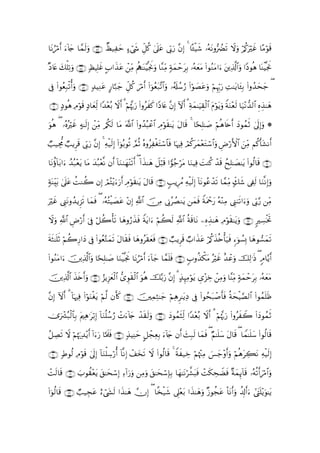 قَوْمًا غَيْرَكُمْ وَلَا تَضُرُّونَهُ شَيْئًا ۚ إِنَّ رَبِّي عَلَىٰ كُلِّ شَيْءٍ حَفِيظٌ ﴿٥٧﴾ وَلَمَّا جَاءَ أَمْرُنَا
نَجَّيْنَا هُودًا وَالَّذِينَ آمَنُوا مَعَهُ بِرَحْمَةٍ مِنَّا وَنَجَّيْنَاهُمْ مِنْ عَذَابٍ غَلِيظٍ ﴿٥٨﴾ وَتِلْكَ عَادٌ ۖ
جَحَدُوا بِآيَاتِ رَبِّهِمْ وَعَصَوْا رُسُلَهُ وَاتَّبَعُوا أَمْرَ كُلِّ جَبَّارٍ عَنِيدٍ ﴿٥٩﴾ وَأُتْبِعُوا فِي
هَٰذِهِ الدُّنْيَا لَعْنَةً وَيَوْمَ الْقِيَامَةِ ۗ أَلَا إِنَّ عَادًا كَفَرُوا رَبَّهُمْ ۗ أَلَا بُعْدًا لِعَادٍ قَوْمِ هُودٍ ﴿٦٠﴾
۞ وَإِلَىٰ ثَمُودَ أَخَاهُمْ صَالِحًا ۚ قَالَ يَا قَوْمِ اعْبُدُوا اللَّهَ مَا لَكُمْ مِنْ إِلَٰهٍ غَيْرُهُ ۖ هُوَ
أَنْشَأَكُمْ مِنَ الْأَرْضِ وَاسْتَعْمَرَكُمْ فِيهَا فَاسْتَغْفِرُوهُ ثُمَّ تُوبُوا إِلَيْهِ ۚ إِنَّ رَبِّي قَرِيبٌ مُجِيبٌ
﴿٦١﴾ قَالُوا يَا صَالِحُ قَدْ كُنْتَ فِينَا مَرْجُوًّا قَبْلَ هَٰذَا ۖ أَتَنْهَانَا أَنْ نَعْبُدَ مَا يَعْبُدُ آبَاؤُنَا
وَإِنَّنَا لَفِي شَكٍّ مِمَّا تَدْعُونَا إِلَيْهِ مُرِيبٍ ﴿٦٢﴾ قَالَ يَا قَوْمِ أَرَأَيْتُمْ إِنْ كُنْتُ عَلَىٰ بَيِّنَةٍ
مِنْ رَبِّي وَآتَانِي مِنْهُ رَحْمَةً فَمَنْ يَنْصُرُنِي مِنَ اللَّهِ إِنْ عَصَيْتُهُ ۖ فَمَا تَزِيدُونَنِي غَيْرَ
تَخْسِيرٍ ﴿٦٣﴾ وَيَا قَوْمِ هَٰذِهِ نَاقَةُ اللَّهِ لَكُمْ آيَةً فَذَرُوهَا تَأْكُلْ فِي أَرْضِ اللَّهِ وَلَا
تَمَسُّوهَا بِسُوءٍ فَيَأْخُذَكُمْ عَذَابٌ قَرِيبٌ ﴿٦٤﴾ فَعَقَرُوهَا فَقَالَ تَمَتَّعُوا فِي دَارِكُمْ ثَلَاثَةَ
أَيَّامٍ ۖ ذَٰلِكَ وَعْدٌ غَيْرُ مَكْذُوبٍ ﴿٦٥﴾ فَلَمَّا جَاءَ أَمْرُنَا نَجَّيْنَا صَالِحًا وَالَّذِينَ آمَنُوا
مَعَهُ بِرَحْمَةٍ مِنَّا وَمِنْ خِزْيِ يَوْمِئِذٍ ۗ إِنَّ رَبَّكَ هُوَ الْقَوِيُّ الْعَزِيزُ ﴿٦٦﴾ وَأَخَذَ الَّذِينَ
ظَلَمُوا الصَّيْحَةُ فَأَصْبَحُوا فِي دِيَارِهِمْ جَاثِمِينَ ﴿٦٧﴾ كَأَنْ لَمْ يَغْنَوْا فِيهَا ۗ أَلَا إِنَّ
ثَمُودَ كَفَرُوا رَبَّهُمْ ۗ أَلَا بُعْدًا لِثَمُودَ ﴿٦٨﴾ وَلَقَدْ جَاءَتْ رُسُلُنَا إِبْرَاهِيمَ بِالْبُشْرَىٰ
قَالُوا سَلَامًا ۖ قَالَ سَلَامٌ ۖ فَمَا لَبِثَ أَنْ جَاءَ بِعِجْلٍ حَنِيذٍ ﴿٦٩﴾ فَلَمَّا رَأَىٰ أَيْدِيَهُمْ لَا تَصِلُ
إِلَيْهِ نَكِرَهُمْ وَأَوْجَسَ مِنْهُمْ خِيفَةً ۚ قَالُوا لَا تَخَفْ إِنَّا أُرْسِلْنَا إِلَىٰ قَوْمِ لُوطٍ ﴿٧٠﴾
وَامْرَأَتُهُ قَائِمَةٌ فَضَحِكَتْ فَبَشَّرْنَاهَا بِإِسْحَاقَ وَمِنْ وَرَاءِ إِسْحَاقَ يَعْقُوبَ ﴿٧١﴾ قَالَتْ
يَا وَيْلَتَىٰ أَأَلِدُ وَأَنَا عَجُوزٌ وَهَٰذَا بَعْلِي شَيْخًا ۖ إِنَّ هَٰذَا لَشَيْءٌ عَجِيبٌ ﴿٧٢﴾ قَالُوا